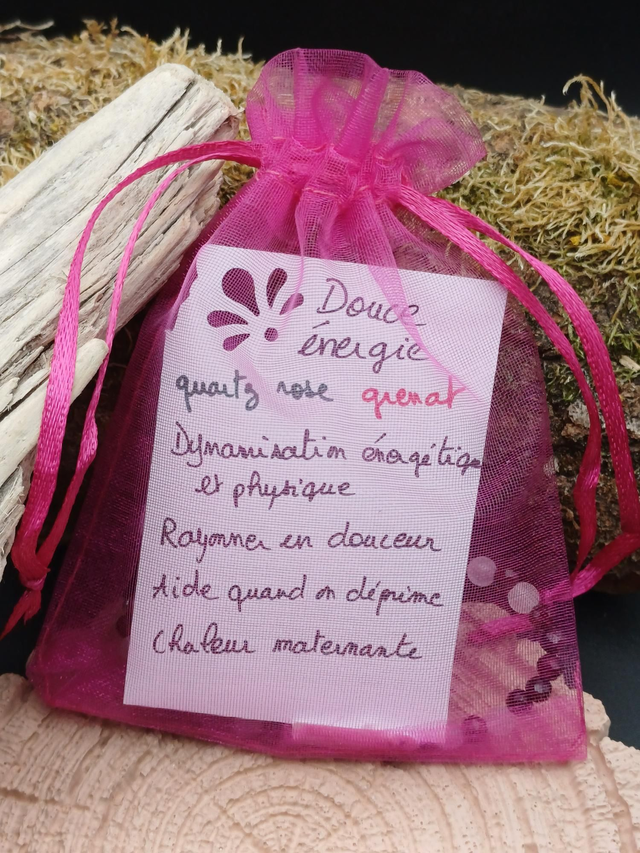 Douce
énergie
quartz rose grenat
Dynamisation énergétique
et physique
Rayonner en douceur
Aide quand on déprime
Chaleur maternante